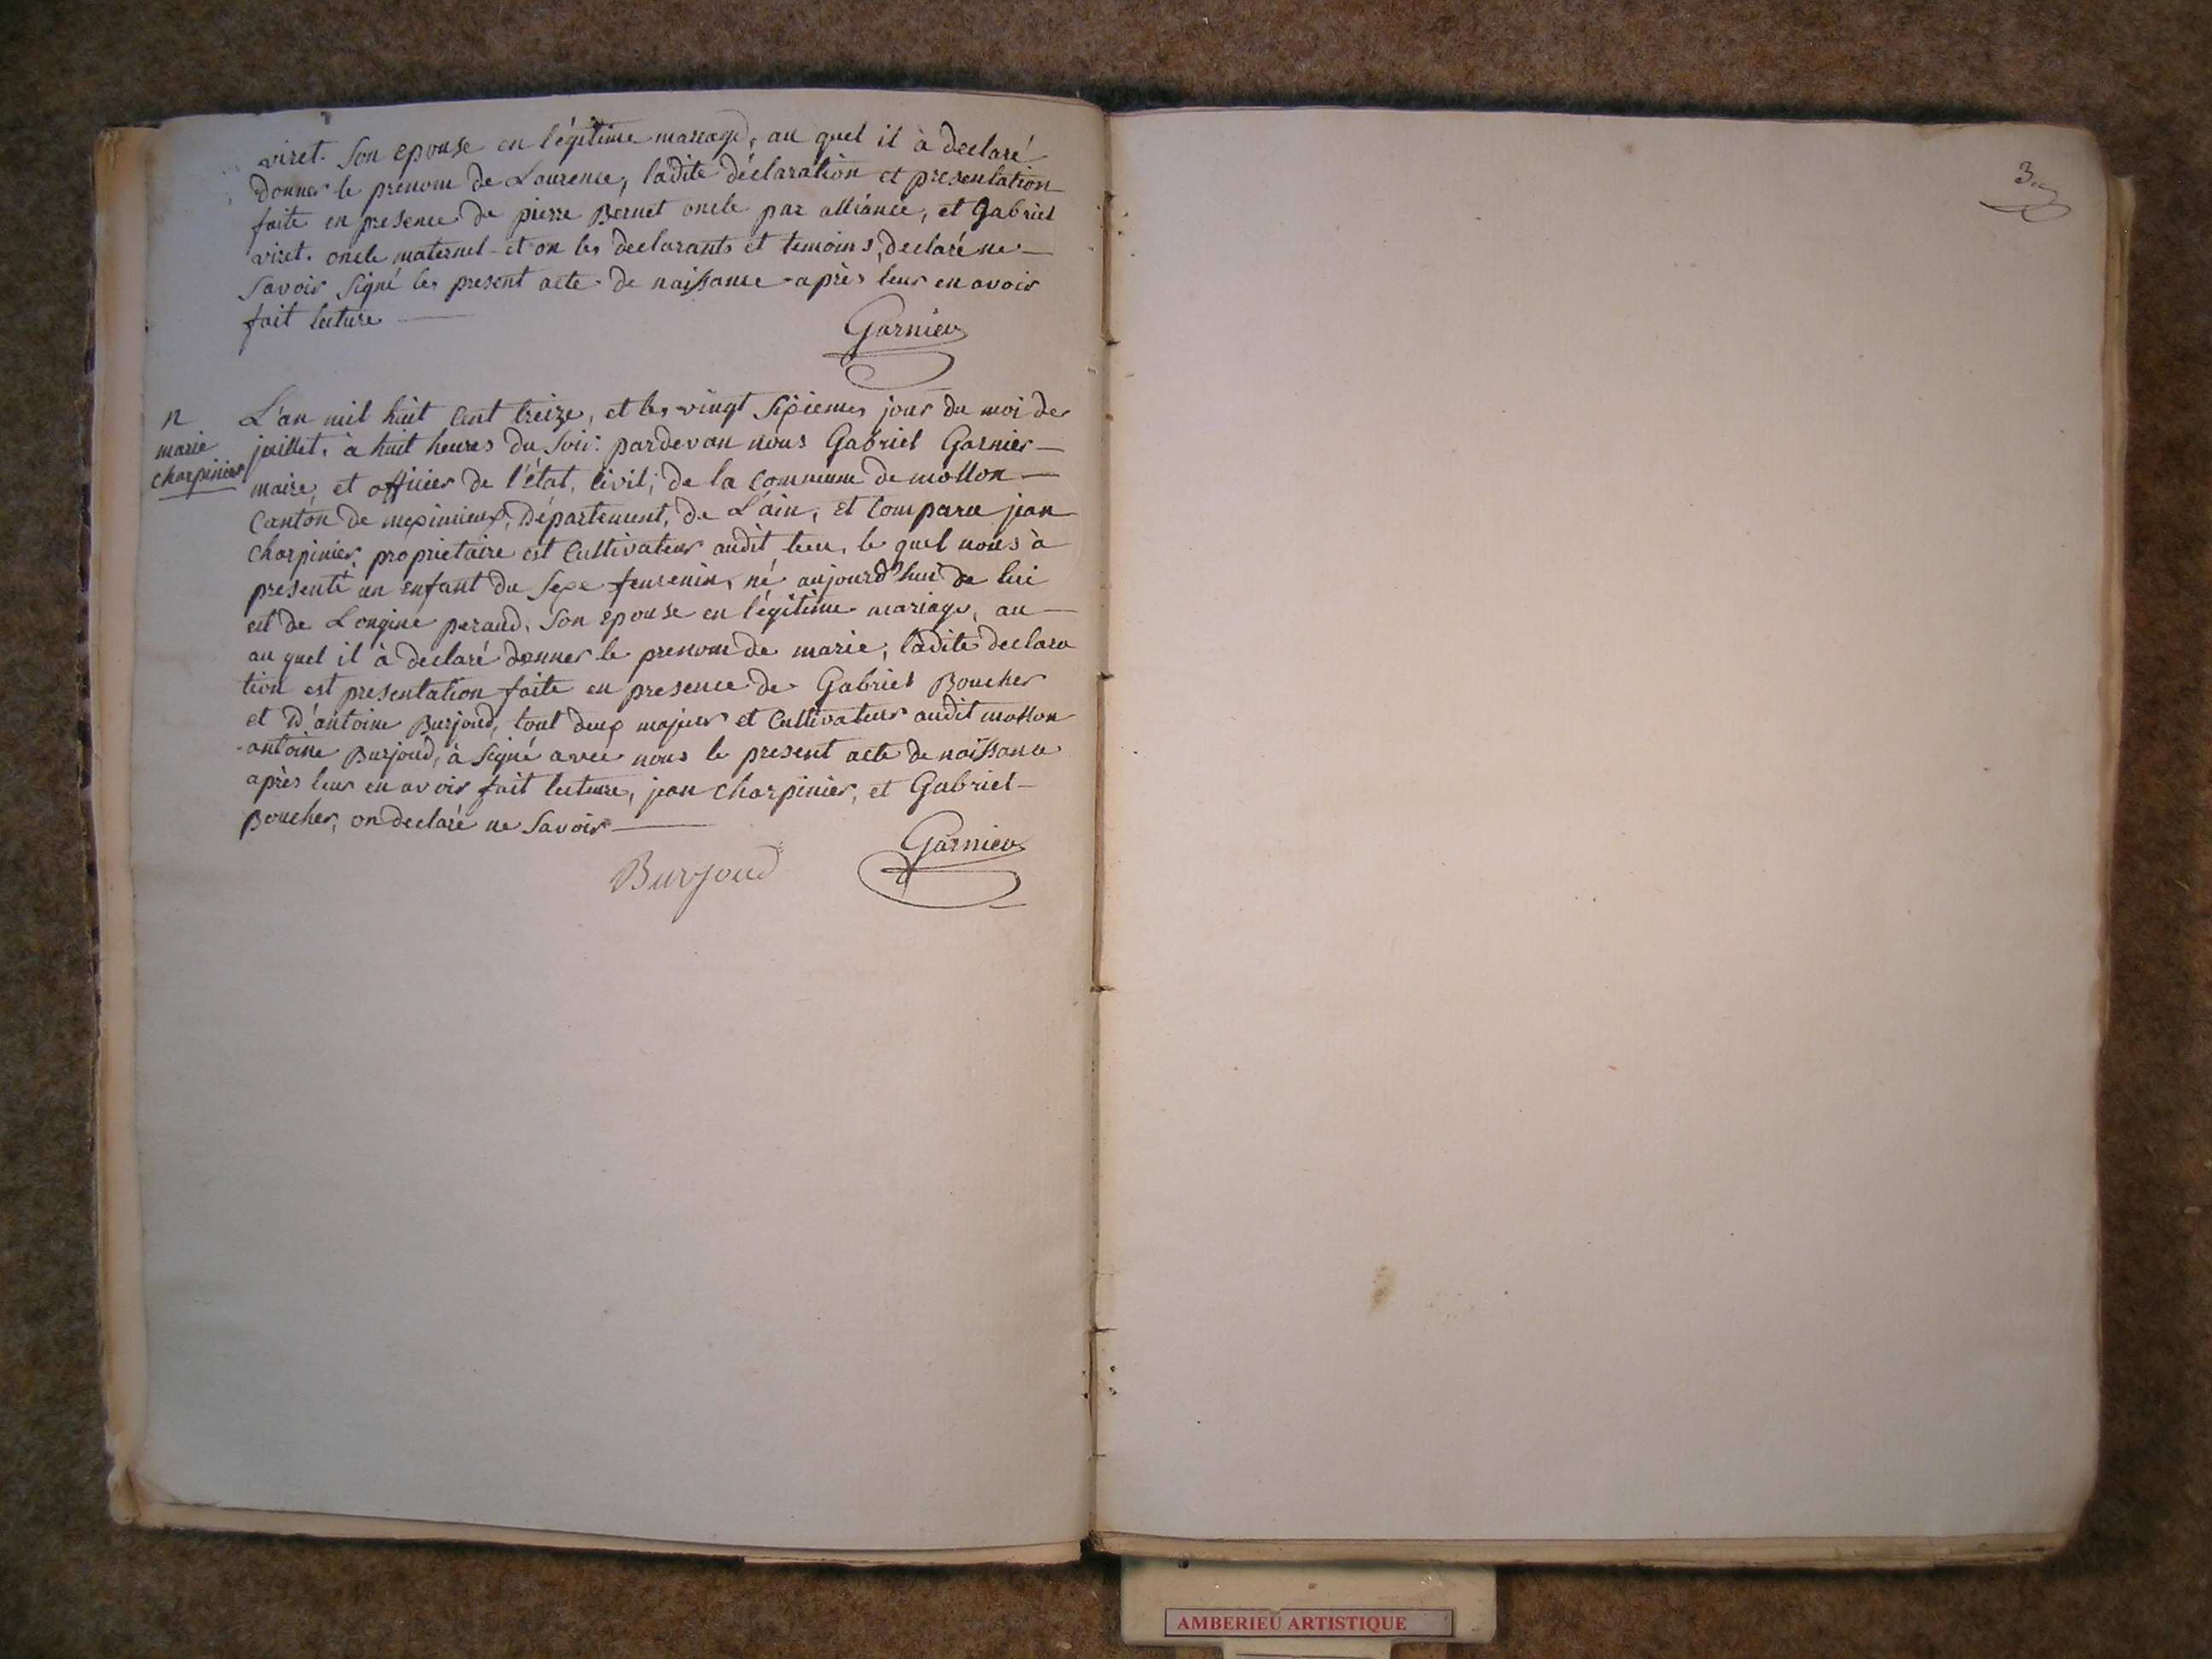 viret. Son epouse en légitime mariage, au quel il à declaré
donner le prenom de Laurence, ladite déclaration et presentation
faite en presence de pierre Bernet oncle par alliance, et Gabriel
viret. oncle maternel et on les declarants et temoins, declaré ne
Savoir Signé les present acte de naissance après leur en avoir
fait lecture
Garnier
n
marie
charpinier
L'an mil huit Cent treize, et les vingt Sixiemes jour du moi de
juillet, à huit heures du Soir: pardevan nous Gabriel Garnier
maire, et officier de l'état, Civil; de la Commune de mollon
Canton de meximieux, Département, de L'ain, et Comparu jean
charpinier, proprietaire est Cultivateur audit lieu, le quel nous à
presenté un enfant du Sexe femenin, né aujourd'hui de lui
est de Longine peraud, Son epouse en légitime mariage, au
au quel il à declaré donner le prenom de marie, ladite declara
tion est presentation faite en presence de Gabriel Boucher
et D'antoine Burjoud, tout deux majeur et Cultivateur audit mollon
antoine Burjoud, à Signé avec nous le present acte de naissance
après leur en avoir fait lecture, jean charpinier, et Gabriel
Boucher, on declaré ne Savoir
Burjoud
Garnier
3
AMBERIEU ARTISTIQUE